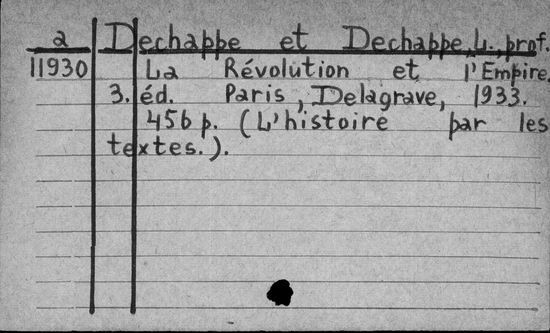 a Dechappe et Dechappe, L., prof.
11930 La Révolution et l'Empire.
3. éd. Paris, Delagrave, 1933.
456 p. (L'histoire par les
textes.).